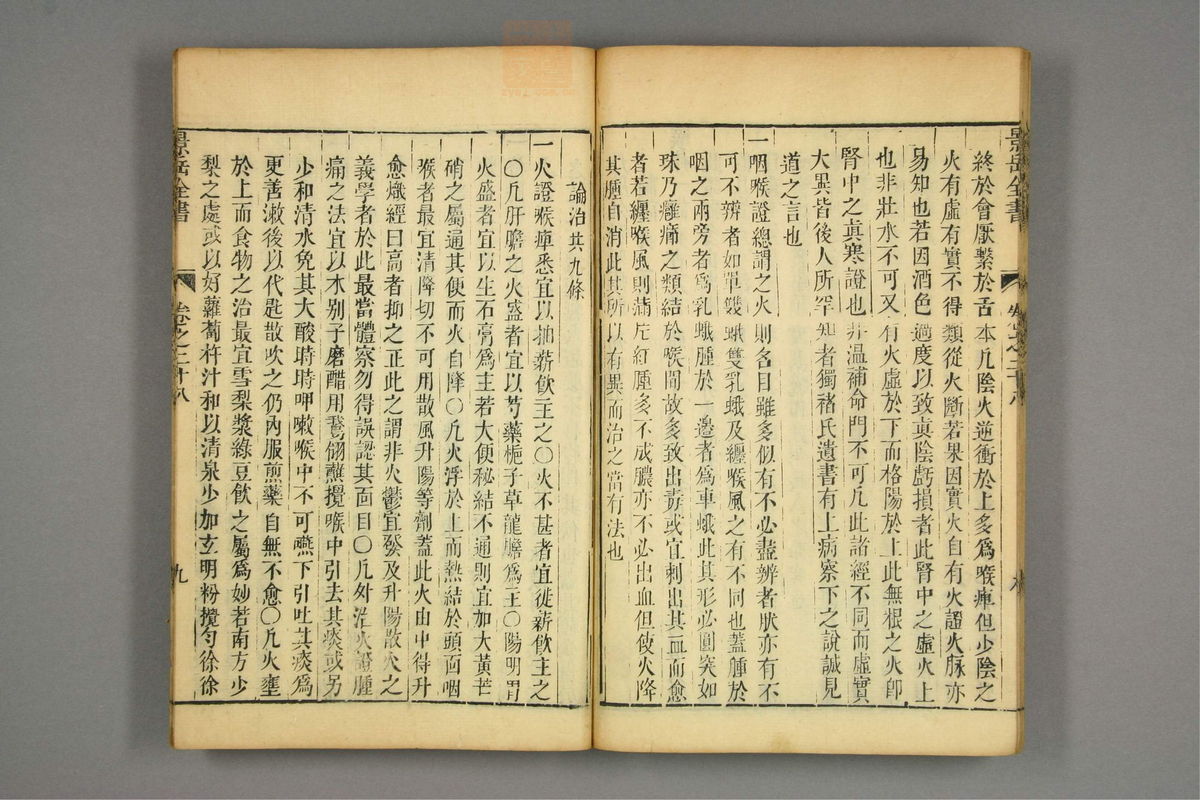 景岳全書
卷之二十八
終於會厭繫於舌本凡陰火逆衝於上多爲喉痺但少陰之
火有虛有實不得類從火斷若果因實火自有火證火脈亦
易知也若因酒色過度以致眞陰虧損者此腎中之虛火上
也非壯水不可又有火虛於下而格陽於上此無根之火即
腎中之眞寒證也非溫補命門不可凡此諸經不同而虛實
大異皆後人所罕知者獨褚氏遺書有上病察下之說誠見
道之言也
一咽喉證總謂之火則各目雖多似有不必盡辨者肰亦有不
可不辨者如單雙蛾雙乳蛾及纏喉風之有不同也蓋腫於
咽之兩旁者爲乳蛾腫於一邊者爲車蛾此其形必圓突如
珠乃癰癤之類結於喉間故多致出毒或宜刺出其血而愈
者若纏喉風則滿片紅腫多不成膿亦不必出血但使火降
其腫自消此其所以有異而治之當有法也
論治共九條
一火證喉痺悉宜以抽薪飲主之〇火不甚者宜徙薪飲主之
〇凡肝膽之火盛者宜以芍藥梔子草龍膽爲主〇陽明胃
火盛者宜以生石膏爲主若大便秘結不通則宜加大黃芒
硝之屬通其便而火自降〇凡火浮於上而熱結於頭面咽
喉者最宜清降切不可用散風升陽等劑蓋此火由中得升
愈熾經曰高者抑之正此之謂非火鬱宜發及升陽散火之
義學者於此最當體察勿得誤認其面目〇凡外治火證腫
痛之法宜以木别子磨醋用鵞翎蘸攪喉中引去其痰或另
少和清水免其大酸時時呷嗽喉中不可嚥下引吐其痰爲
更善漱後以代匙散吹之仍內服煎藥自無不愈〇凡火壅
於上而食物之治最宜雪梨漿綠豆飲之屬爲妙若南方少
梨之處或以好蘿蔔杵汁和以清泉少加玄明粉攪勻徐徐
景岳全書
卷之二十八
九